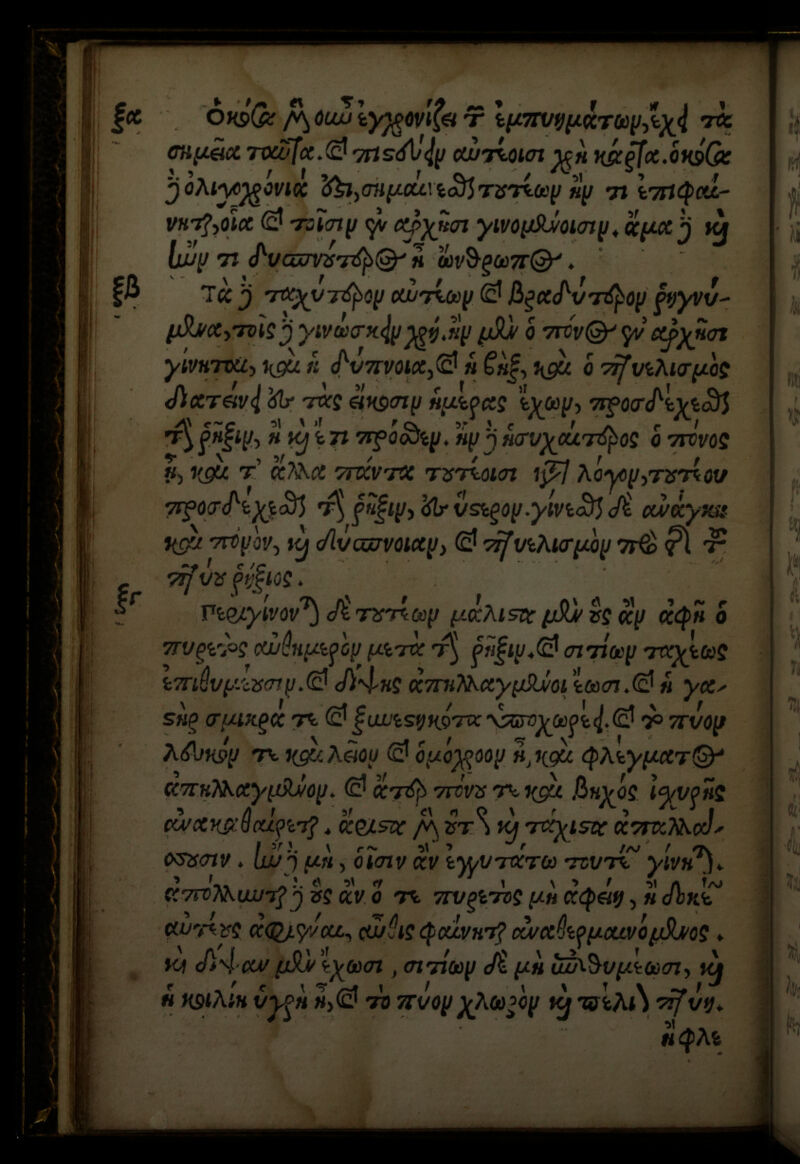 ξα Ὁκόσα μὲν οὖν ἐγχρονίζει τῶν ἐμπυημάτων, ἔχει τὰ
σημεῖα ταῦτα. καὶ πιστεύειν αὐτέοισι χρὴ κάρτα. ὁκόσα
δὲ ὀλιγοχρόνιά ἐστι, σημαίνεσθαι τουτέων ἤν τι ἐπιφαί-
νηται, οἷα καὶ τοῖσιν ἐν ἀρχῇσι γινομένοισιν, ἅμα δὲ καὶ
ἤν τι δυσπνούστερος ᾖ ὤνθρωπος.
ξβ Τὰ δὲ ταχύτερον αὐτέων καὶ βραδύτερον ῥηγνύ-
μενα, τοῖς δὲ γινώσκειν χρή. ἢν μὲν ὁ πόνος ἐν ἀρχῇσι
γίνηται, καὶ ἡ δύσπνοια, καὶ ἡ βὴξ, καὶ ὁ πτυελισμὸς
διατείνει ἐς τὰς εἴκοσιν ἡμέρας ἔχων, προσδέχεσθαι
τὴν ῥῆξιν, ἢ καὶ ἔτι πρόσθεν. ἢν δὲ ἡσυχαίτερος ὁ πόνος
ᾖ, καὶ τ' ἄλλα πάντα τουτέοισι κατὰ λόγον, τουτέου
προσδέχεσθαι τὴν ῥῆξιν, ἐς ὕστερον. γίνεσθαι δὲ ἀνάγκη
καὶ πόνον, καὶ δύσπνοιαν, καὶ πτυελισμὸν πρὸ τῆς τοῦ
πύου ῥήξιος.
ξγ Περιγίνονται δὲ τουτέων μάλιστα μὲν οὓς ἂν ἀφῇ ὁ
πυρετὸς αὐθημερὸν μετὰ τὴν ῥῆξιν. καὶ σιτίων ταχέως
ἐπιθυμέουσιν. καὶ δίψης ἀπηλλαγμένοι ἔωσι. καὶ ἡ γα-
στὴρ σμικρά τε καὶ ξυνεστηκότα ὑποχωρέει. καὶ τὸ πύον
λευκόν τε καὶ λεῖον καὶ ὁμόχροον ᾖ, καὶ φλέγματος
ἀπηλλαγμένον. καὶ ἄτερ πόνου τε καὶ βηχὸς ἰσχυρῆς
ἀνακαθαίρεται. ἄριστα μὲν οὕτω καὶ τάχιστα ἀπαλλάσ-
σουσιν. ἢν δὲ μὴ, οἷσιν ἂν ἐγγυτάτω τουτέων γίνηται.
ἀπόλλυνται δὲ οὓς ἂν ὅ τε πυρετὸς μὴ ἀφείη, ἢ δοκέων
αὐτέους ἀφιγέναι, αὖθις φαίνηται ἀναθερμαινόμενος.
καὶ δίψαν μὲν ἔχωσι, σιτίων δὲ μὴ ἐπιθυμέωσι, καὶ
ἡ κοιλίη ὑγρὴ ᾖ, καὶ τὸ πύον χλωρὸν καὶ πελιὸν πτύῃ.
ἢ φλε